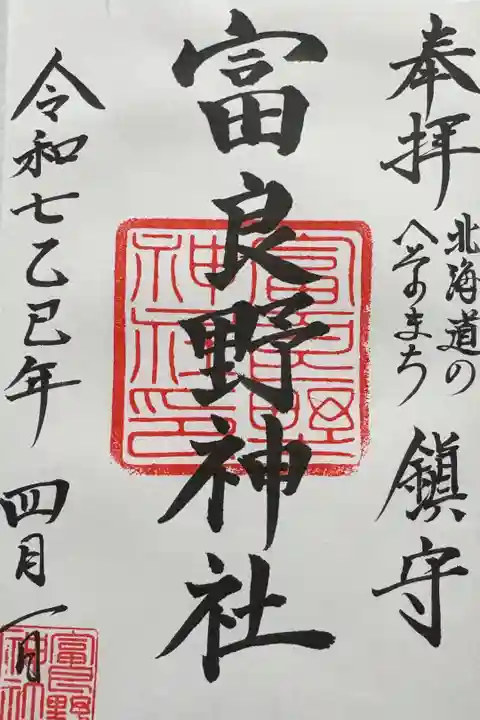 奉拝
北海道の
へそのまち
鎮守
富良野神社
富良野
神社印
令和七乙巳年 四月一日
富良野
神社